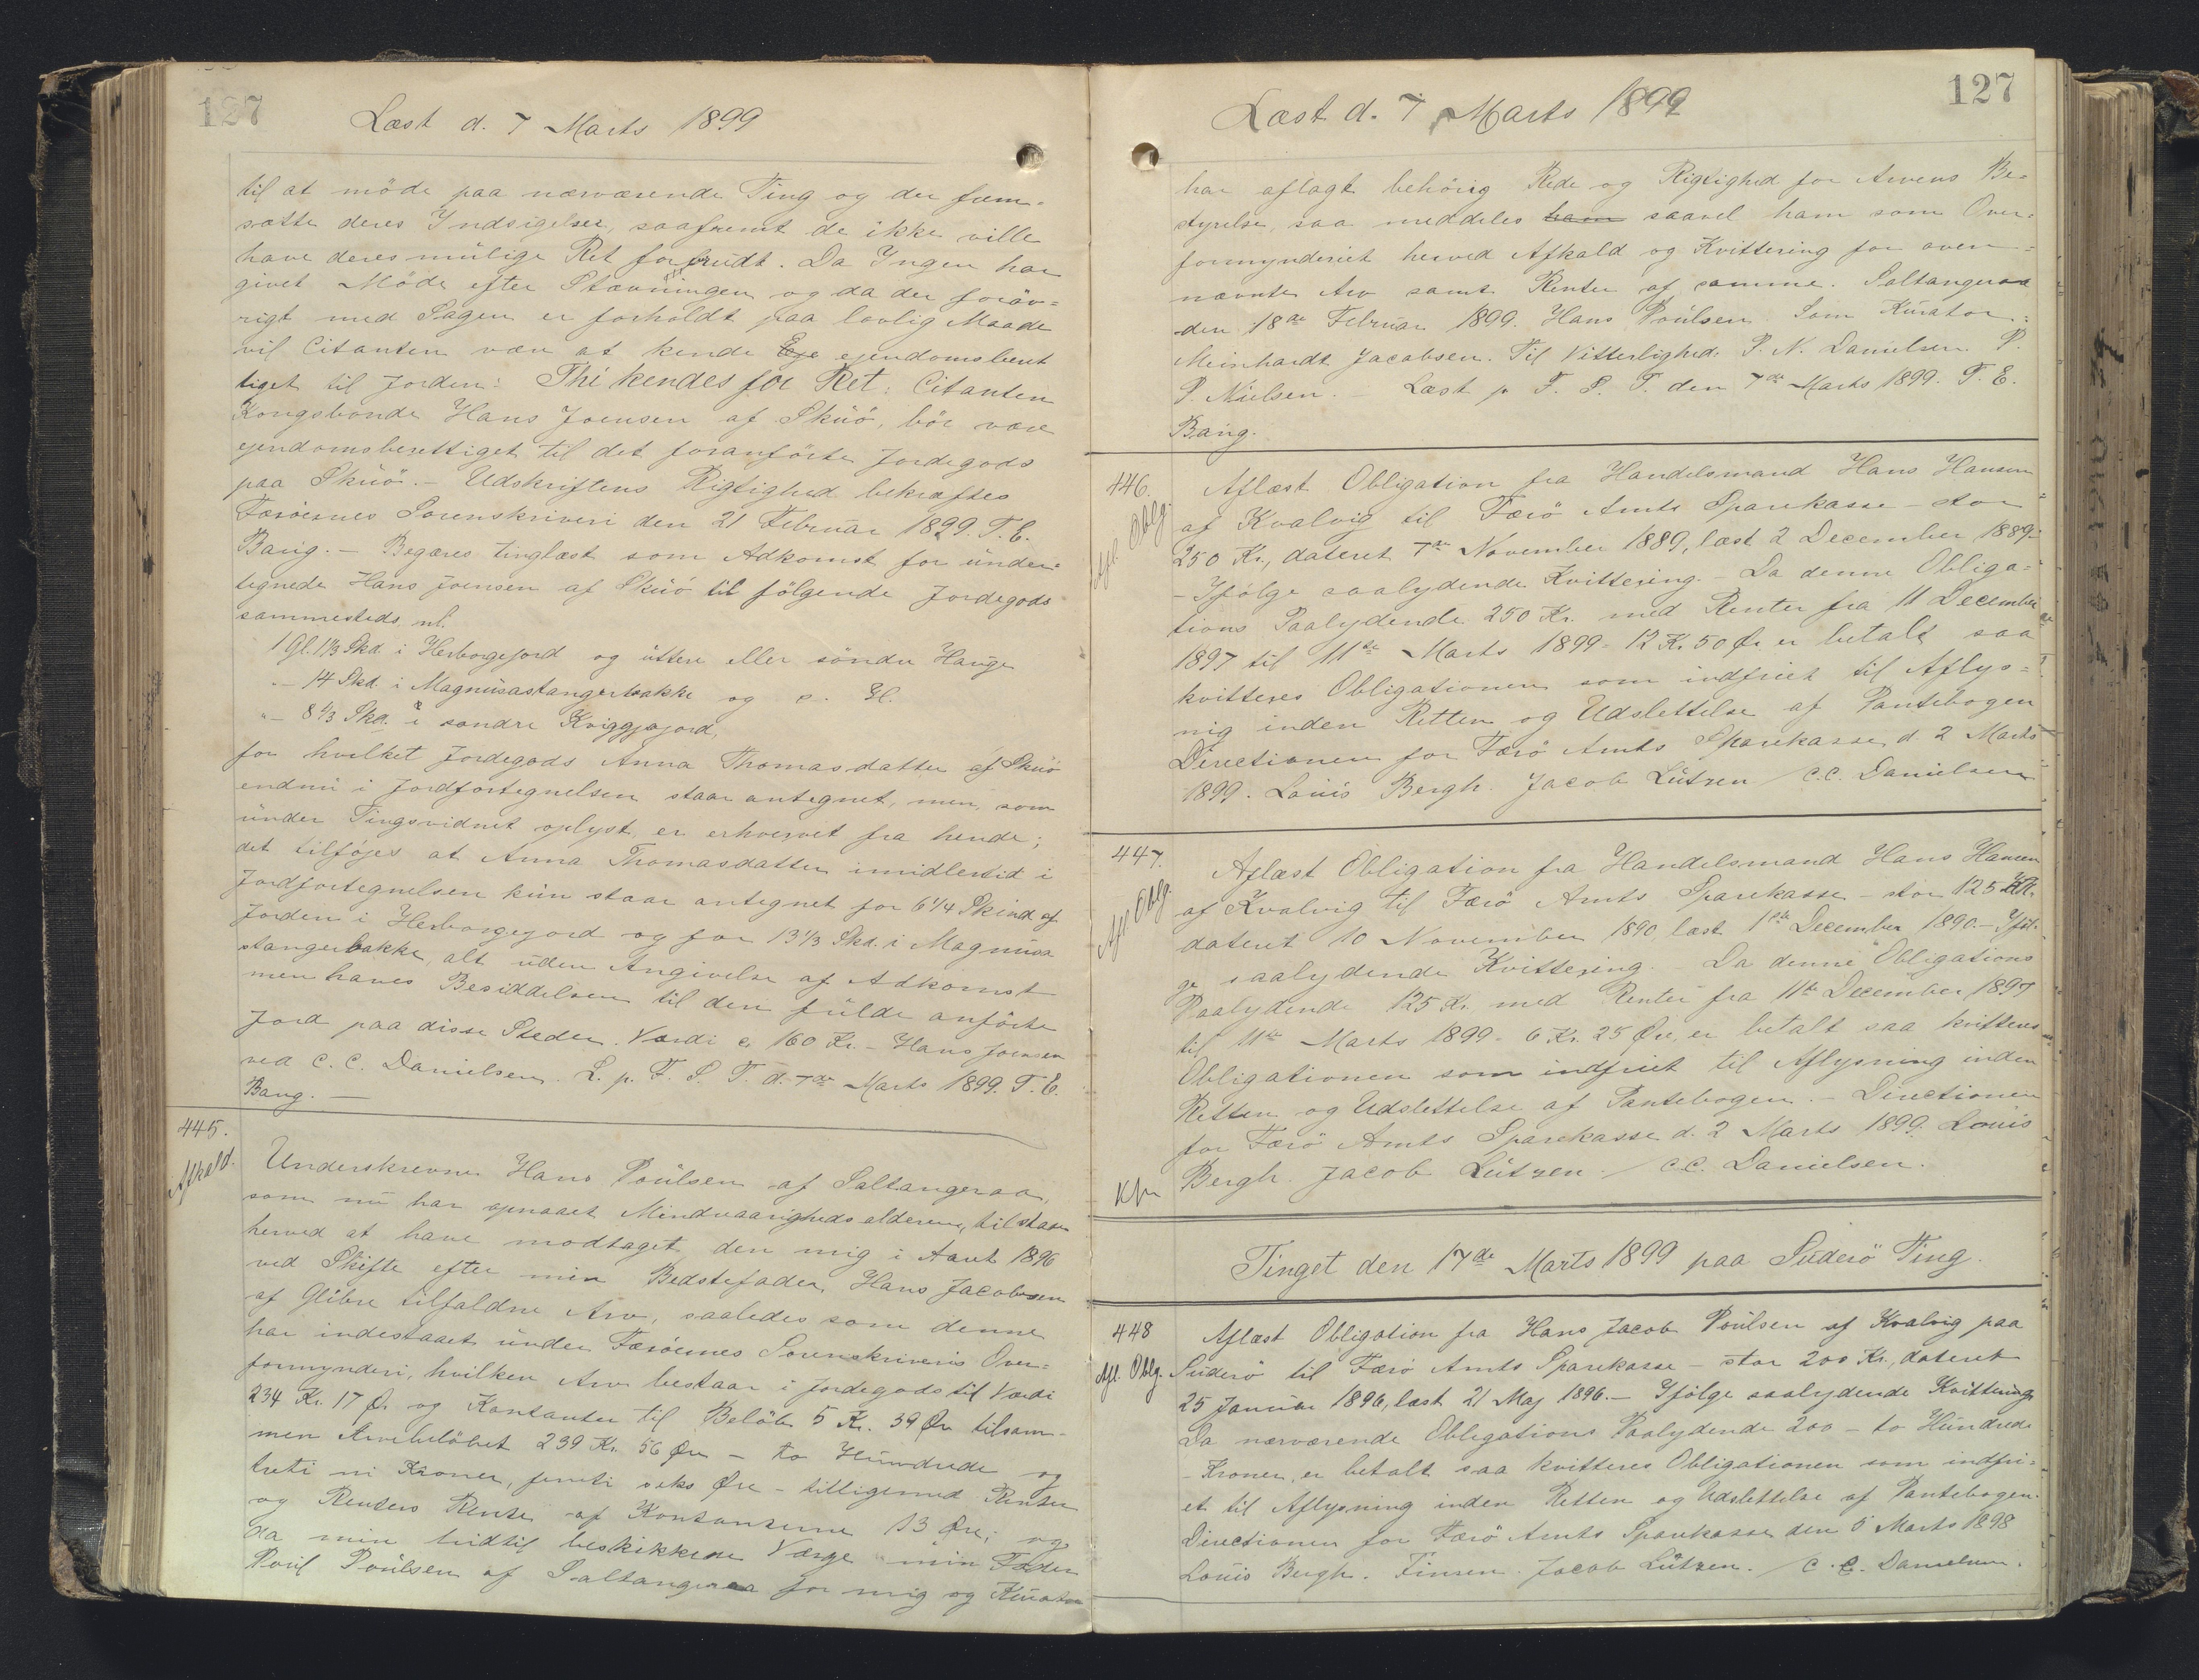 127
Læst d. 7 Marts 1899
til at möde paa nærværende Ting og der frem=
sætte deres Indsigelser, saafremt de ikke ville
have deres mulige Ret forbrudt. Da Ingen har
givet Möde efter Stævningen og da der foröv=
rigt med Sagen er forholdt paa lovlig Maade
vil Citanten være at kende Eje ejendomsberet
tiget til Jorden: Thi kendes for Ret: Citanten
Kongsbonde Hans Joensen af Skuö, bör være
ejendomsberettiget til det foranförte Jordegods
paa Skuö. – Udskriftens Rigtighed bekræftes
Færöernes Sorenskriveri den 21 Februar 1899. T. E.
Bang. – Begæres tinglæst som Adkomst for under=
tegnede Hans Joensen af Skuö til fölgende Jordegods
sammesteds nl.
1 Gl. 1 1/3 Skd. i Herborgejord og uttere eller söndre Hauge
„ – 14 Skd. i Magnusastangerbakke og
„ – 8 1/3 Skd. i söndre Kviggjajord,
for hvilket Jordegods Anna Thomasdatter af Skuö
endnu i Jordfortegnelsen staar antegnet, men, som
under Tingsvidnet oplyst, er erhvervet fra hende;
det tilföjes at Anna Thomasdatter imidlertid i
Jordfortegnelsen kun staar antegnet for 6 1/4 Skind af
Jorden i Herborgejord og for 13 1/3 Skd. i Magnusa
stangerbakke, alt uden Angivelse af Adkomst
men haves Besiddelsen til den fulde anförte
Jord paa disse Steder. Værdi c. 160 Kr. – Hans Joensen
ved C. C. Danielsen. L. p. F. S. T. d. 7de Marts 1899. T. E.
Bang. –
445.
Afkald.
Underskrevne Hans Poulsen af Saltangeraa,
som nu har opnaaet Mindreaarighedsalderen, tilstaar
herved at have modtaget den mig i Aaret 1896
ved Skifte efter min Bedstefader Hans Jacobsen
af Glibre tilfaldne Arv, saaledes som denne
har indestaaet under Færöernes Sorenskriveris Over=
formynderi, hvilken Arv bestaar i Jordegods til Værdi
234 Kr. 17 Ø. og Kontanter til Belöb 5 Kr. 39 Øre tilsam-
men Arvebelöbet 239 Kr. 56 Øre – to Hundrede og
treti ni Kroner, femti seks Øre – tilligemed Renter
og Renters Rente af Kontanterne 13 Øre; og
da min hidtil beskikkede Værge min Fader
Poul Poulsen af Saltangeraa for mig og Kurator
127
Læst d. 7 Marts 1899
har aflagt behörig Rede og Rigtighed for Arvens Be=
styrelse, saa meddeles ham saavel ham som Over=
formynderiet herved Afkald og Kvittering for oven=
nævnte Arv samt Renter af samme. Saltangeraa
den 18de Februar 1899. Hans Poulsen. Som Kurator:
Meinhardt Jacobsen. Til Vitterlighed: P. N. Danielsen. P.
P. Nielsen. – Læst p F. S. T. den 7de Marts 1899. T. E.
Bang.
446.
Afl. Oblg.
Aflæst Obligation fra Handelsmand Hans Hansen
af Kvalvig til Færö Amts Sparekasse – stor
250 Kr., dateret 7de November 1889, læst 2 December 1889
– Ifölge saalydende Kvittering. – Da denne Obliga=
tions Paalydende 250 Kr. med Renter fra 11 December
1897 til 11te Marts 1899 – 12 Kr. 50 Øre er betalt saa
kvitteres Obligationen som indfriet til Aflys=
nig inden Retten og Udslettelse af Pantebogen
Directionen for Færö Amts Sparekasse d. 2 Marts
1899. Louis Bergh. Jacob Lützen / C. C. Danielsen
447.
Afl. Oblg.
Aflæst Obligation fra Handelsmand Hans Hansen
af Kvalvig til Færö Amts Sparekasse – stor 125 Kr.
dateret 10 November 1890 læst 1ste December 1890. – Iföl-
ge saalydende Kvittering. – Da denne Obligations
Paalydende 125 Kr. med Renter fra 11te December 1897
til 11te Marts 1899 – 6 Kr. 25 Øre, er betalt saa kvitteres
Obligationen som indfriet til Aflysning inden
Retten og Udslettelse af Pantebogen. – Directionen
for Færö Amts Sparekasse d. 2 Marts 1899. Louis
Bergh. Jacob Lützen. / C. C. Danielsen.
Tinget den 17de Marts 1899 paa Suderö Ting.
448
Afl. Oblg.
Aflæst Obligation fra Hans Jacob Poulsen af Kvalvig paa
Suderö til Færö Amts Sparekasse – stor 200 Kr., dateret
25 Januar 1896, læst 21 Maj 1896. – Ifölge saalydende Kvittering
Da nærværende Obligations Paalydende 200 – to Hundrede
– Kroner, er betalt saa kvitteres Obligationen som indfri=
et til Aflysning inden Retten og Udslettelse af Pantebogen.
Directionen for Færö Amts Sparekasse den 5 Marts 1898
Louis Bergh. Finsen. Jacob Lützen. / C. C. Danielsen.